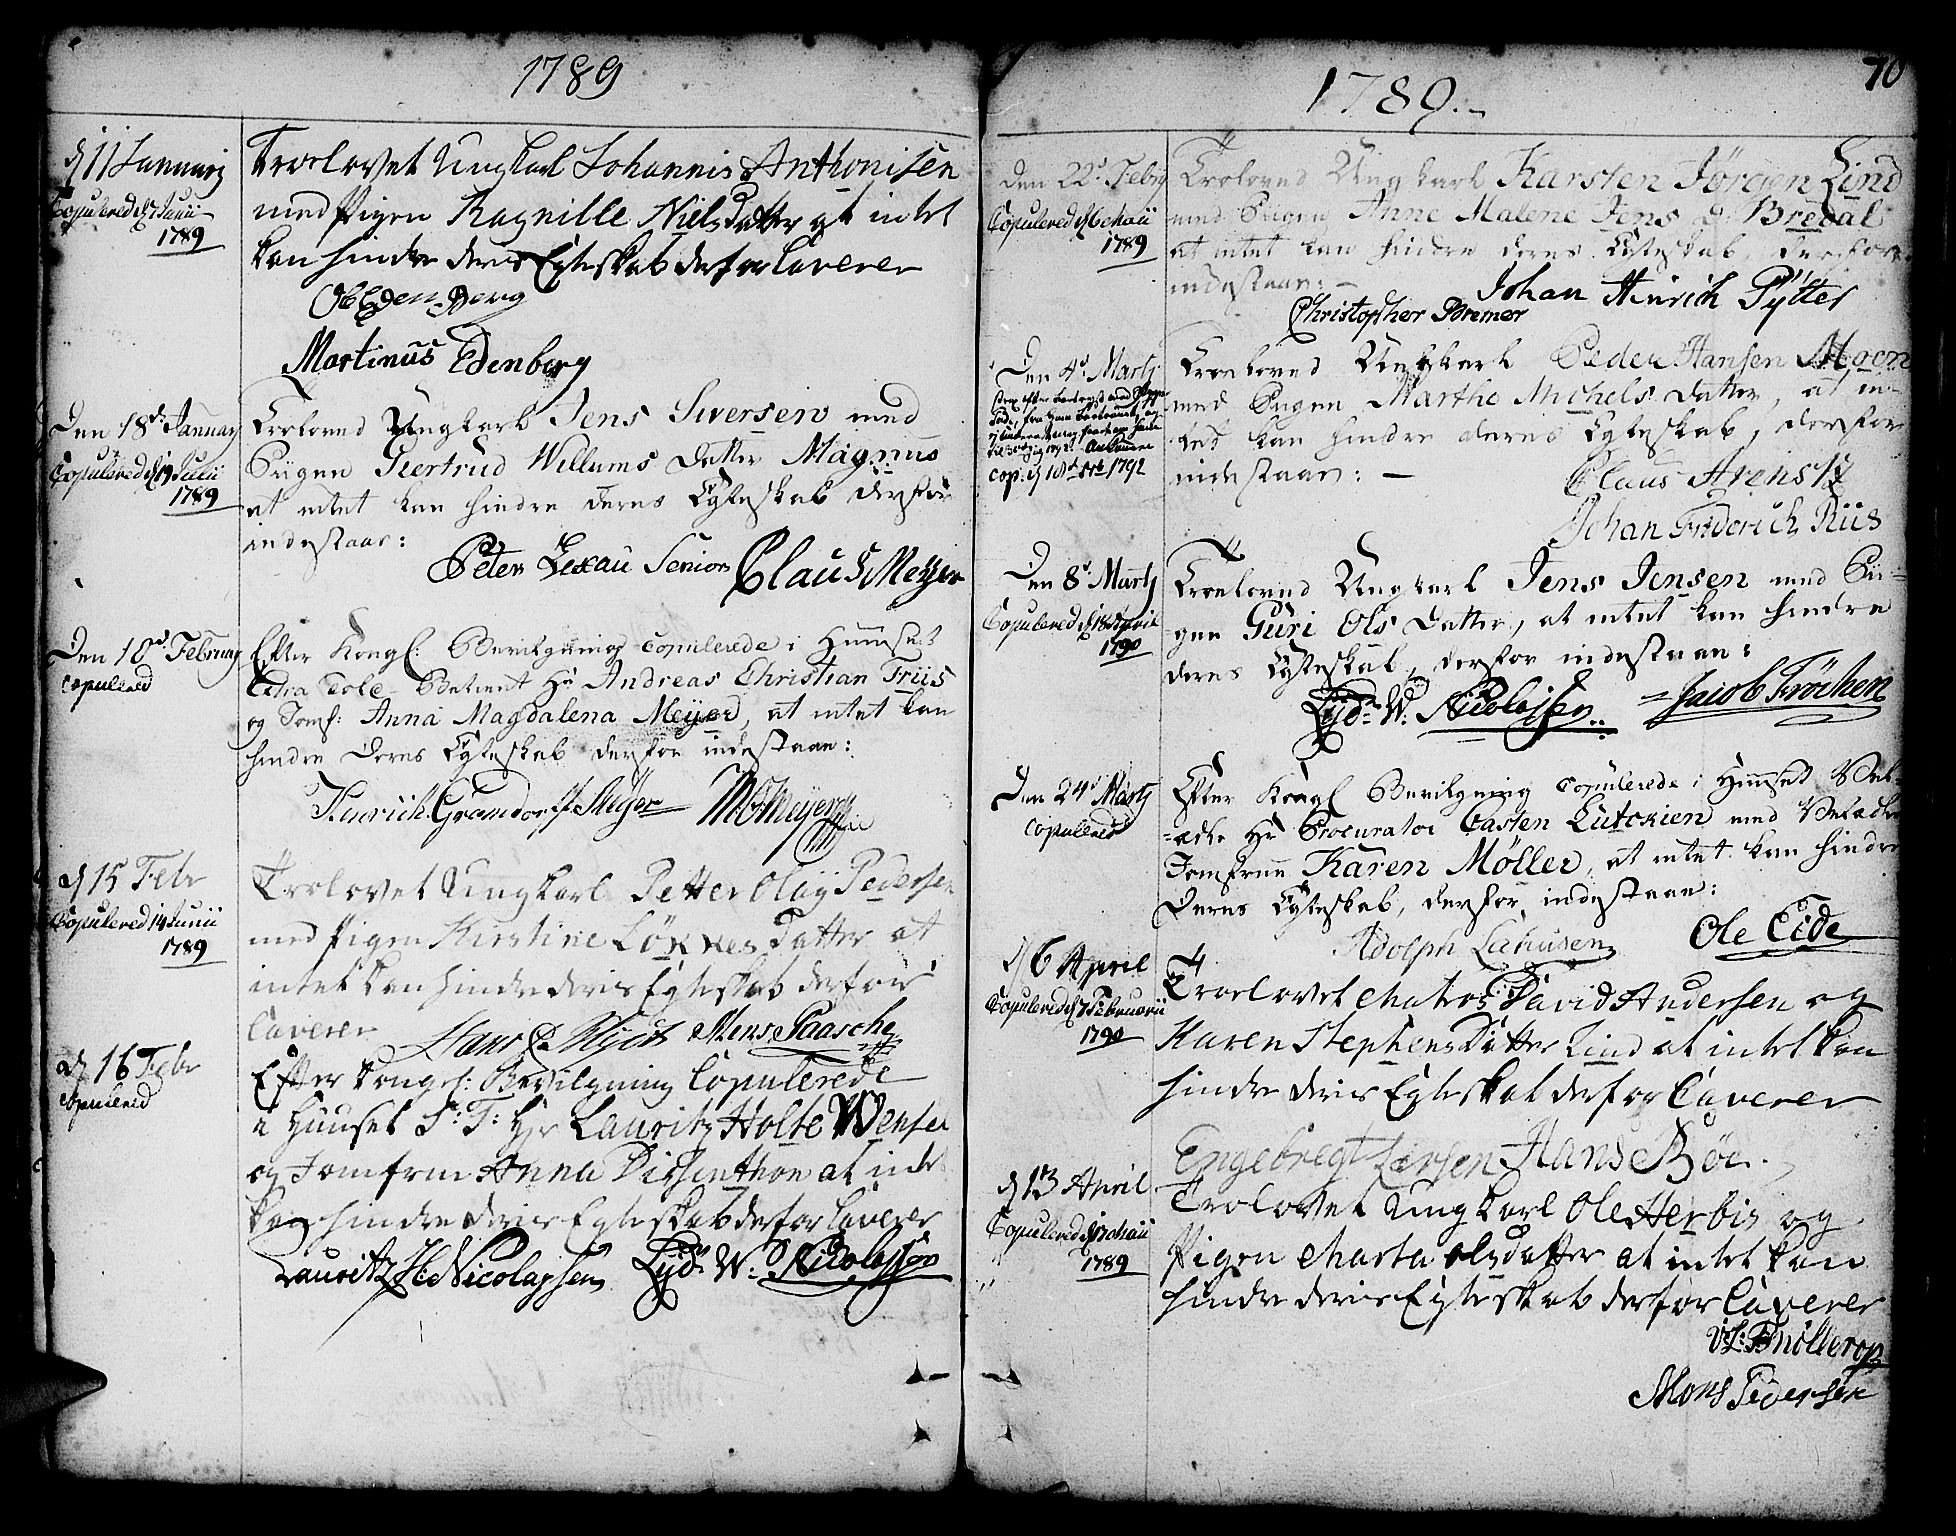 1789
d 11 Januarij
Copulered d 7 Junii
1789
Troelovet Ungkarl Johannis Anthonisen
med Pigen Ragnille Nielsdatter at intet
kan hindre deris Egteskab derfor Caverer
Ob Edenberg
Martinus Edenberg
Den 18de Januarj
Copulered d 19 Julii
1789
Troloved Ungkarl Jens Siversen med
Piigen Giertrud Willums Datter Magnus
at intet kan hindre deres Egteskab derfor
indestaar:
Peter Lexau Senior Claus Meyer
Den 10de Februarj
copulered
Efter Kongl: Bevilgning copulerede i Huuset
Extra Told Betient Hr Andreas Christian Friis
og Jomf: Anna Magdalena Meyer, at intet kan
hindre Deres Egteskab derfor indestaae:
Hinrich Gramdorff Meyer
d 15 Febr
Copulered 14 Junii
1789
Trolovet Ungkarl Petter Olaij Pedersen
med Pigen Kirstine Løkkes Datter at
intet kan hindre deris Egteskab derfor
Caverer
Mons Paasche
d 16 Febr
Copulered
Efter Kongel: Bevilgning Copulerede
i Huuset S: T: Hr Lauritz Holte Wensel
og Jomfrue Anna Dirsenthon at intet
kan hindre deris Egteskab derfor Caverer
Lauritz H Nicolaysen Lyd: W: Nicolaysen
1789.
70
Den 22d Febrj
Copulered d 6 Maii
1789
Troloved Ungkarl Karsten Jørgen Lind
med Piigen Anne Malene Jens D: Bredal
at intet kan hindre deres Egteskab, derfore
indestaae:
Johan Hinrich Pytter
Christopher Bremer
Den 4d Martj
cop: d 18d 1792
Troeloved Ungkarl Peder Hansen Moen
med Piigen Marthe Michels Datter, at in-
tet kan hindre deres Egteskab, derfor
indestaae:
Claus Arenstz
Johan Friderich Riis
Den 8d Martj
Copulered d 18 April
1790
Troeloved Ungkarl Jens Jensen med Pii-
gen Guri Ols Datter, at intet kan hindre
deres Egteskab, derfor indestaae:
Lyd: W: Nicolaysen Jacob Fröchen
Den 24d Martj
copulered
Efter Kongl Bevilgning copulerede i Huuset Vel-
ædle Hr Procurator Casten Lutckien med Velædle
Jomfrue Karen Møller, at intet kan hindre
Deres Egteskab, derfor indestaae:
Adolph Lahusen Ole Eide
d 6 April
Copulered d 7 Februarii
1790
Troelovet Matros David Andersen og
Karen Stephens Datter Lind at intet kan
hindre deris Egteskab derfor Caverer
Engebregt Larsen Hans Bøe.
d 13 April
Copulered d Maii
1789
Trolovet Ungkarl Ole Herbis og
Pigen Marta Olsdatter at intet kan
hindre deris Egteskab derfor Caverer
Mons Pedersen